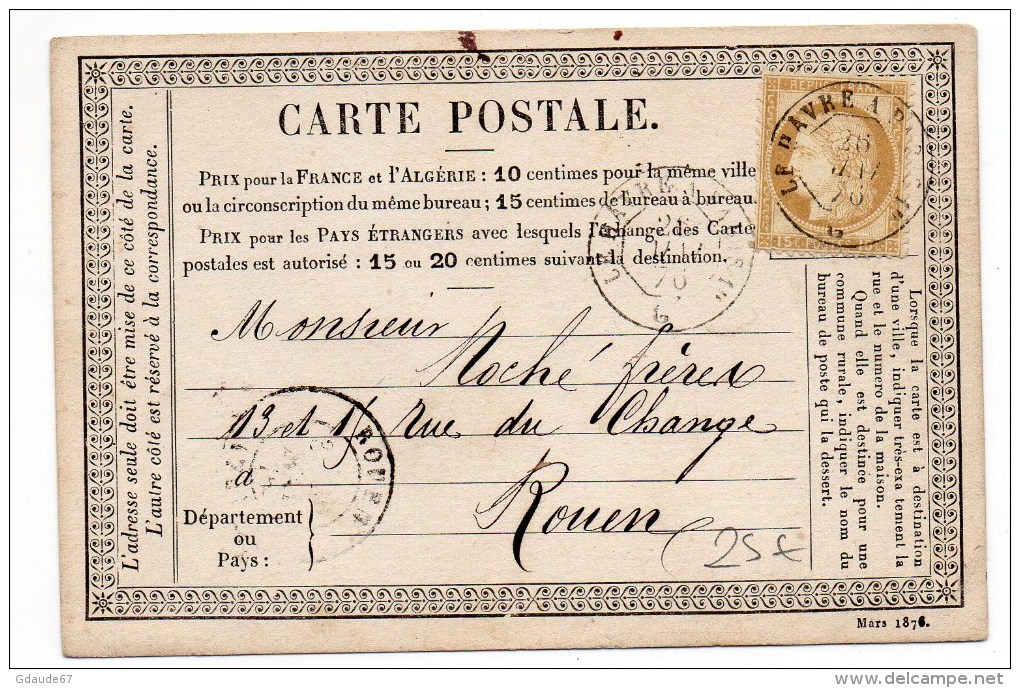 CARTE POSTALE.
PRIX pour la FRANCE et l'ALGÉRIE : 10 centimes pour la même ville
ou la circonscription du même bureau ; 15 centimes de bureau à bureau.
PRIX pour les PAYS ÉTRANGERS avec lesquels l'échange des Cartes
postales est autorisé : 15 ou 20 centimes suivant la destination.
LE HAVRE A PARIS 1°
26
76
G
LE HAVRE A PARIS 1°
76
G
15c
L'adresse seule doit être mise de ce côté de la carte.
L'autre côté est réservé à la correspondance.
Monsieur
Roché frères
13 et Rue du Change
à
Rouen
ROUEN
Département
ou
Pays :
25€
Lorsque la carte est à destination
d'une ville, indiquer très-exactement la
rue et le numero de la maison.
Quand elle est destinée pour une
commune rurale, indiquer le nom du
bureau de poste qui la dessert.
Mars 1876.
Gdaude67